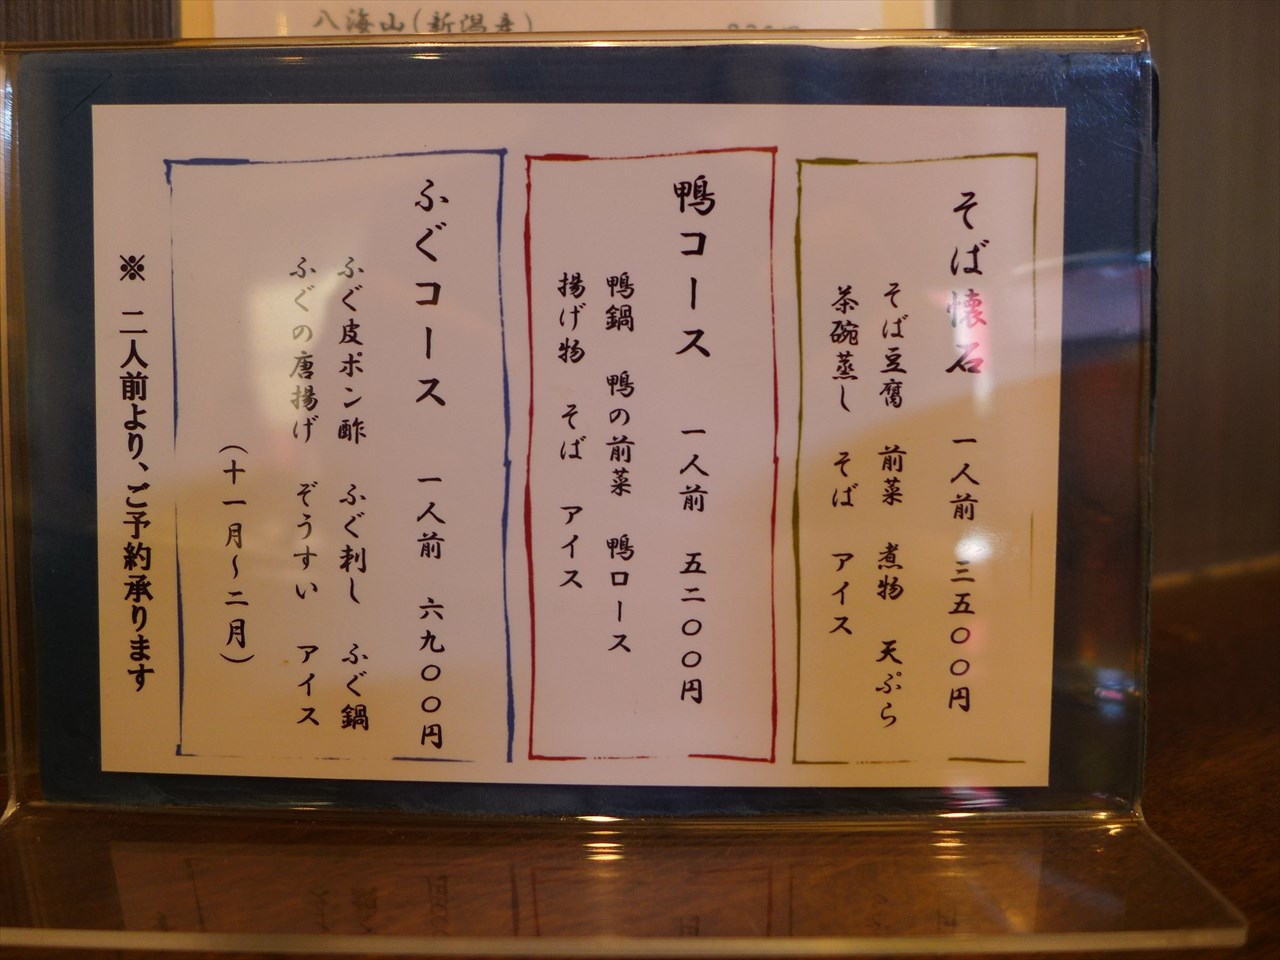 八海山(新潟産)
そば懐石 一人前 三五〇〇円
そば豆腐 前菜 煮物 天ぷら
茶碗蒸し そば アイス
鴨コース 一人前 五二〇〇円
鴨鍋 鴨の前菜 鴨ロース
揚げ物 そば アイス
ふぐコース 一人前 六九〇〇円
ふぐ皮ポン酢 ふぐ刺し ふぐ鍋
ふぐの唐揚げ ぞうすい アイス
(十一月〜二月)
※ 二人前より、ご予約承ります